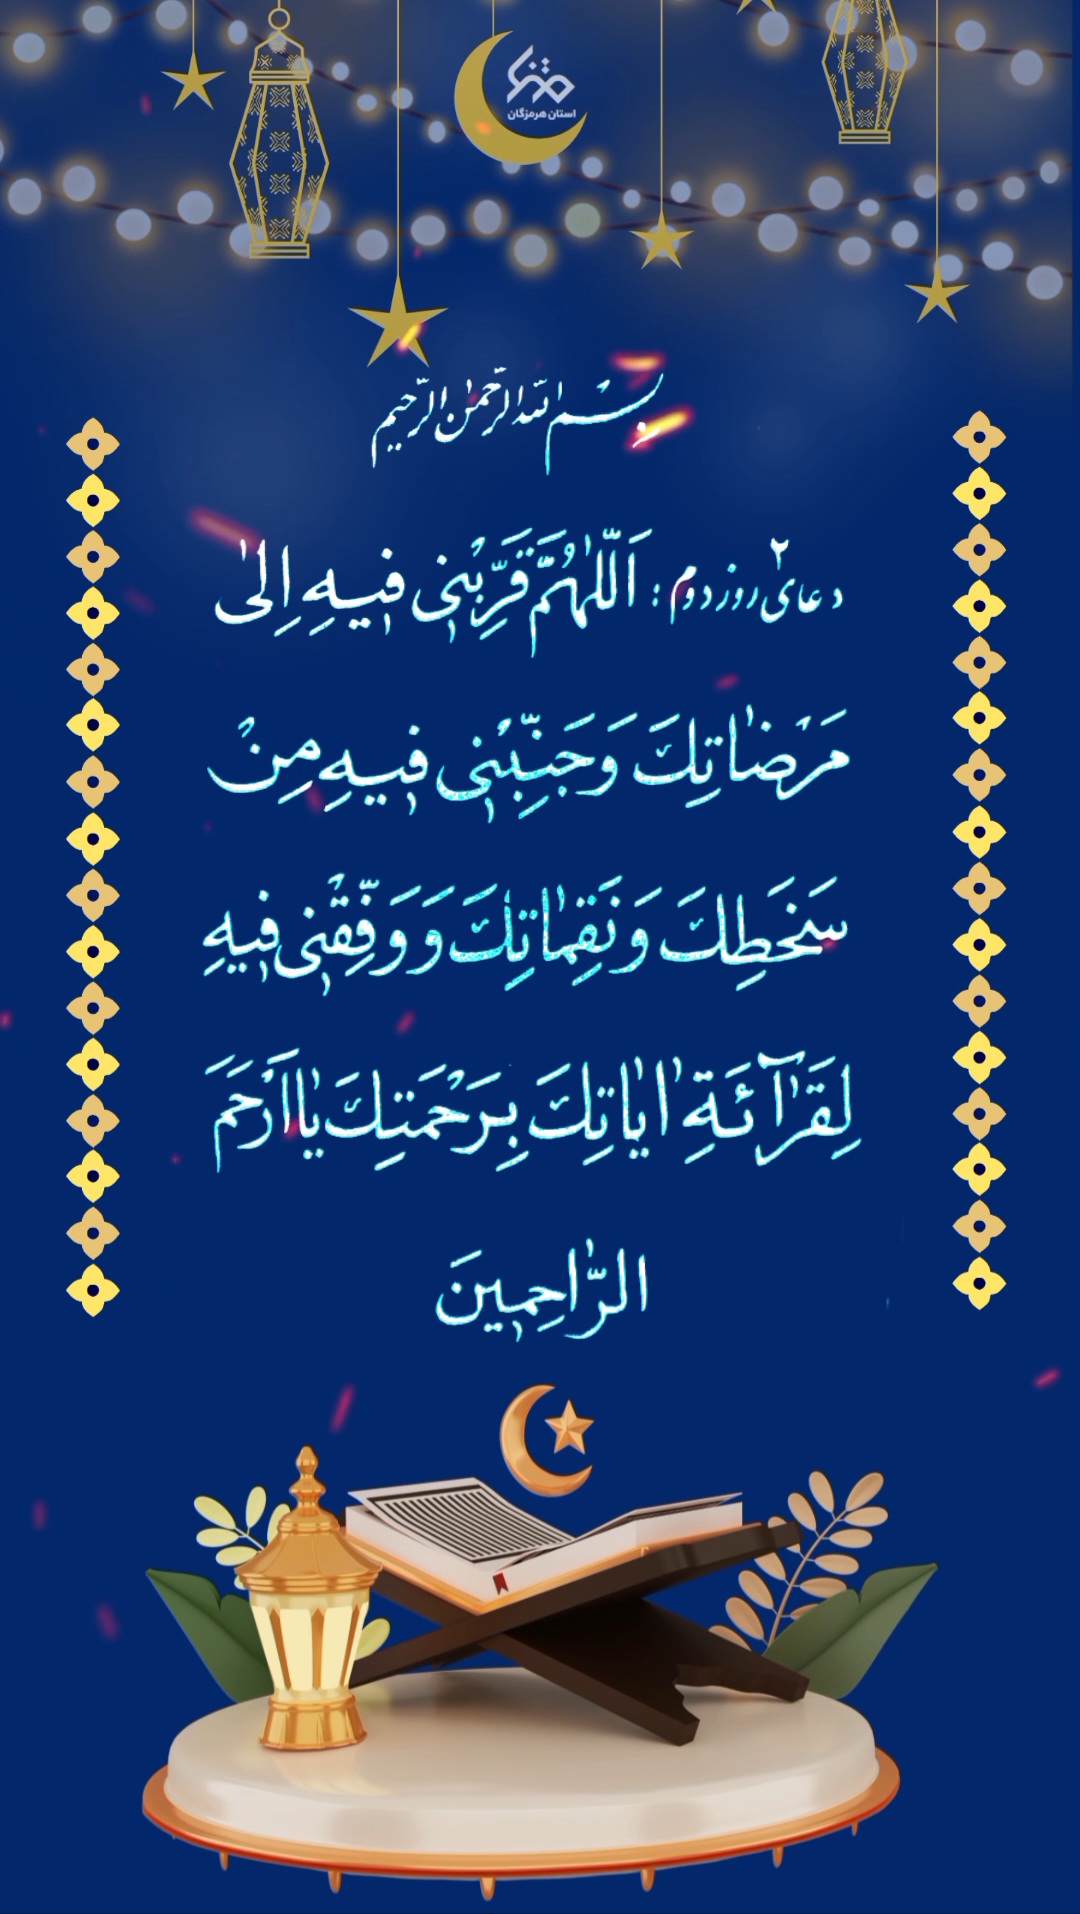 متنا
استان هرمزگان
بسم الله الرحمن الرحیم
دعای روز دوم ۲ : اَللّٰهُمَّ قَرِّبْنی فیهِ اِلیٰ
مَرْضاتِکَ وَجَنِّبْنی فیهِ مِنْ
سَخَطِکَ وَنَقِماتِکَ وَوَفِّقْنی فیهِ
لِقَرٰآئَةِ ایٰاتِکَ بِرَحْمَتِکَ یٰا اَرْحَمَ
الرّٰاحِمینَ